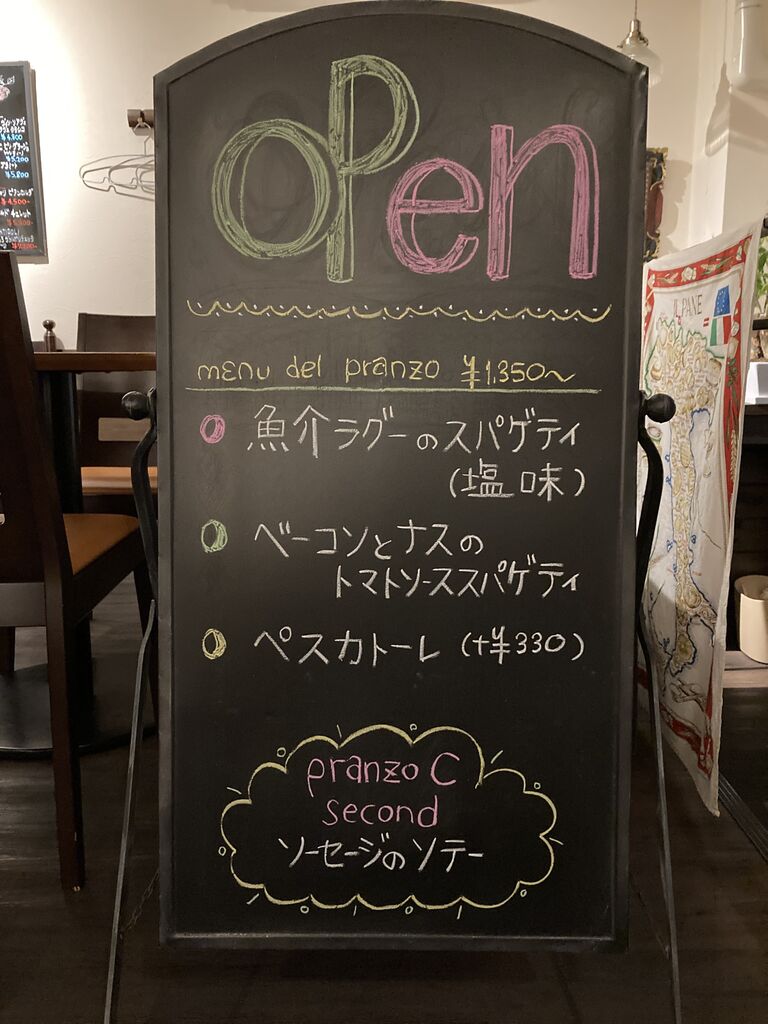 OPen
menu del pranzo ¥1,350~
魚介ラグーのスパゲティ
(塩味)
ベーコンとナスの
トマトソーススパゲティ
ペスカトーレ (+¥330)
pranzo C
second
ソーセージのソテー
IL PANE
¥5,800